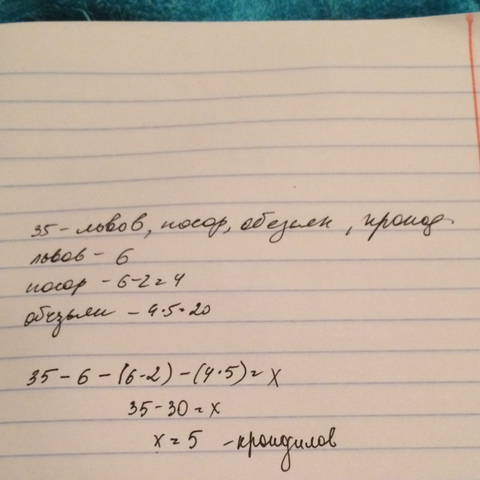 35 - львов, носор, обезьян, крокод.
львов - 6
носор - 6-2=4
обезьян - 4·5=20
35 - 6 - (6-2) - (4·5) = x
35 - 30 = x
x = 5 - крокодилов